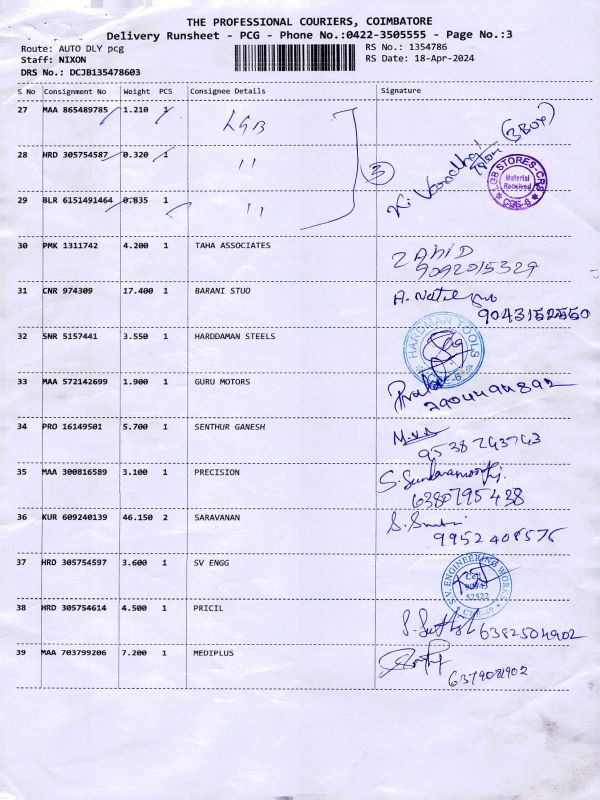 THE PROFESSIONAL COURIERS, COIMBATORE
Delivery Runsheet - PCG - Phone No.:0422-3505555 - Page No.:3
Route: AUTO DLY pcg RS No.: 1354786
Staff: NIXON RS Date: 18-Apr-2024
DRS No.: DCJB135478603
S No Consignment No Weight PCS Consignee Details Signature
27 MAA 865489785 1.210 1 LGB
(3BOX)
28 HRD 305754587 0.320 1 "
3
LGB STORES-CRS
Material Received
CBE-6
29 BLR 6151491464 0.835 1 "
30 PMK 1311742 4.200 1 TAHA ASSOCIATES ZAHID
9092015329
31 CNR 974309 17.400 1 BARANI STUO
9043152550
32 SNR 5157441 3.550 1 HARDDAMAN STEELS
HARDMAN TOOLS
33 MAA 572142699 1.900 1 GURU MOTORS
34 PRO 16149501 5.700 1 SENTHUR GANESH
9538743743
35 MAA 300816589 3.100 1 PRECISION S. Sundaramoorthi
6380795428
36 KUR 609240139 46.150 2 SARAVANAN
9952408576
37 HRD 305754597 3.600 1 SV ENGG
S.V ENGINEERING WORKS
38 HRD 305754614 4.500 1 PRICIL
6382504902
39 MAA 703799206 7.200 1 MEDIPLUS
6379081902